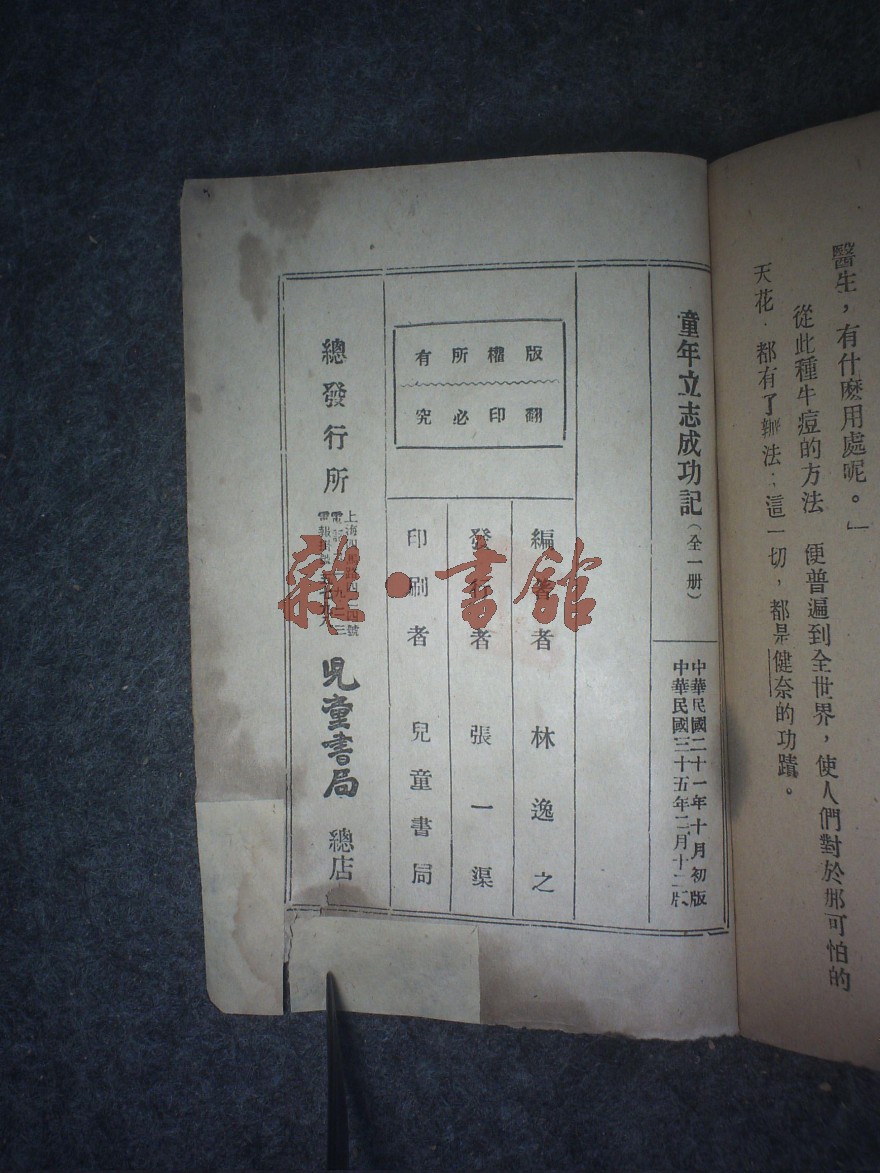 醫生，有什麽用處呢。」
從此種牛痘的方法　便普遍到全世界，使人們對於那可怕的
天花．都有了辦法；這一切，都是健奈的功蹟。
童年立志成功記（全一册）
中華民國二十一年十月初版
中華民國三十五年二月十二版
版權所有
翻印必究
編著者　林逸之
發行者　張一渠
印刷者　兒童書局
總發行所
上海四
兒童書局　總店
雜·書館